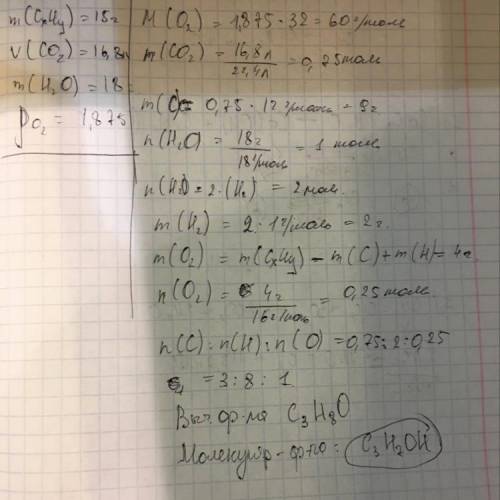 m(CxHy)=15г
V(CO₂)=16,8л
m(H₂O)=18
D O₂ = 1,875
M(O₂) = 1,875·32=60г/моль
m(CO₂)= 16,8л/22,4л =0,75моль
m(C)= 0,75·12г/моль=9г
n(H₂O)= 18г/18г/моль = 1 моль
n(H)=2·(H₂) = 2моль.
m(H₂) = 2·1г/моль=2г.
m(O₂) = m(CxHy)-m(C)+m(H)=4г
n(O₂)= 4г/16г/моль = 0,25моль
n(C):n(H):n(O)=0,75:2:0,25
=3:8:1
Выч. ф-ла C₃H₈O
Молекуляр-ф-ла: C₃H₇OH